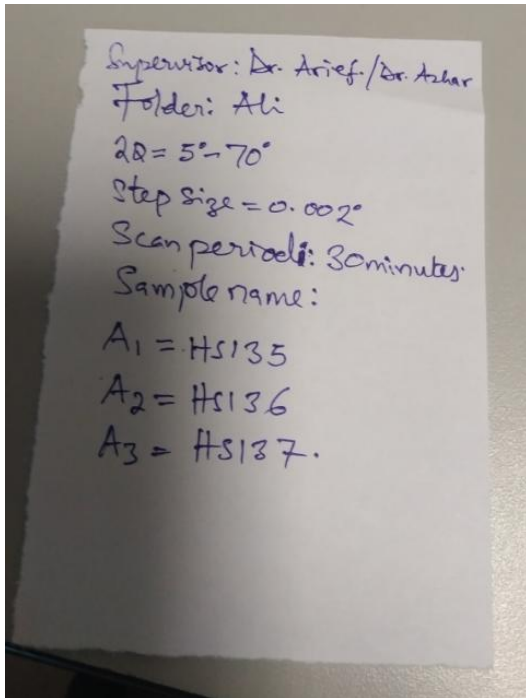 Supervisor: Dr. Arief./Dr. Azhar
Folder: Ali
2Q = 5°-70°
Step size = 0.002°
Scan period: 30minutes.
Sample name:
A1 = HS135
A2 = HS136
A3 = HS137.